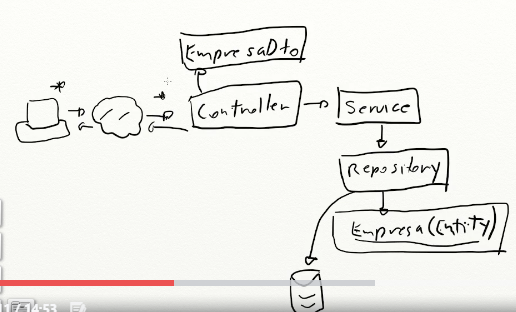 EmpresaDto
Controller
Service
Repository
Empresa(Entity)